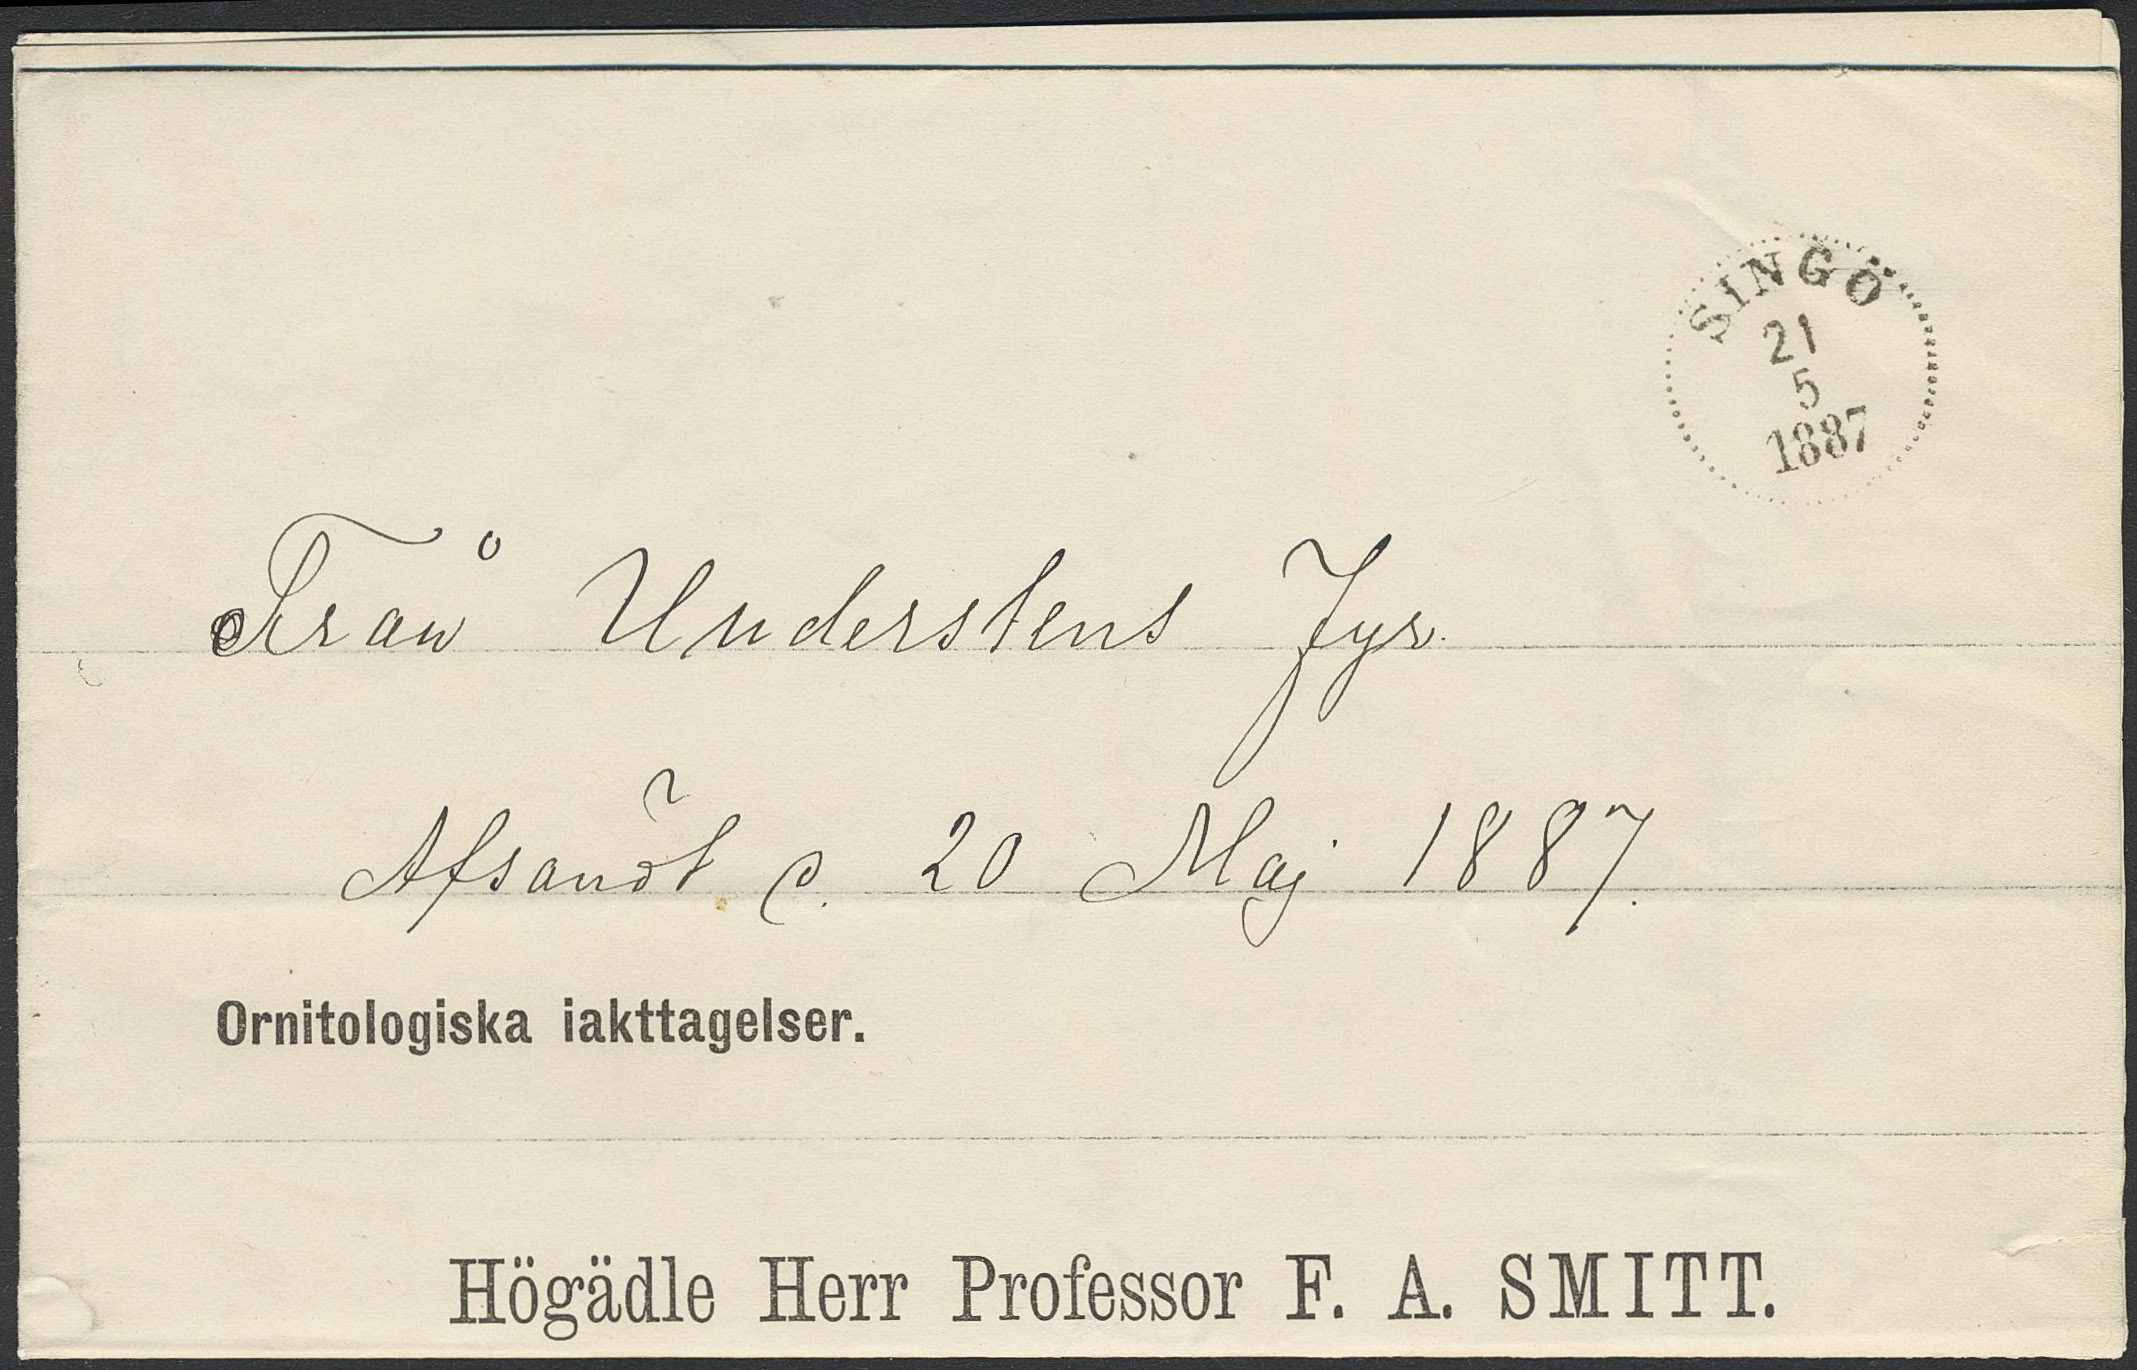 SINGÖ
21
5
1887
Från Understens Fyr.
Afsändt d. 20 Maj 1887.
Ornitologiska iakttagelser.
Högädle Herr Professor F. A. SMITT.